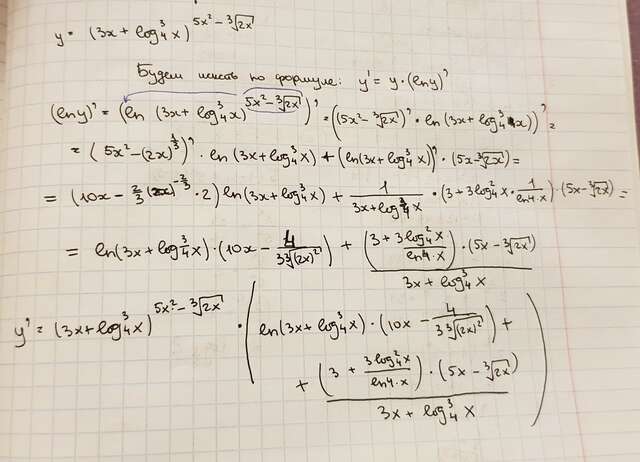 y = (3x + log₄³x)^(5x² − ∛(2x))
Будем искать по формуле: y' = y · (ln y)'
(ln y)' = (ln (3x + log₄³x)^(5x² − ∛(2x)))' = ((5x² − ∛(2x))' · ln (3x + log₄³x))' =
= (5x² − (2x)^(1/3))' · ln (3x + log₄³x) + (ln(3x + log₄³x))' · (5x − ∛(2x)) =
= (10x − 2/3 (2x)^(−2/3) · 2) ln(3x + log₄³x) + 1/(3x + log₄³x) · (3 + 3log₄²x · 1/(ln4·x)) · (5x − ∛(2x)) =
= ln(3x + log₄³x) · (10x − 4/(3∛((2x)²))) + ((3 + 3log₄²x/(ln4·x)) · (5x − ∛(2x)))/(3x + log₄³x)
y' = (3x + log₄³x)^(5x² − ∛(2x)) · (ln(3x + log₄³x) · (10x − 4/(3∛((2x)²))) +
+ ((3 + 3log₄²x/(ln4·x)) · (5x − ∛(2x)))/(3x + log₄³x))